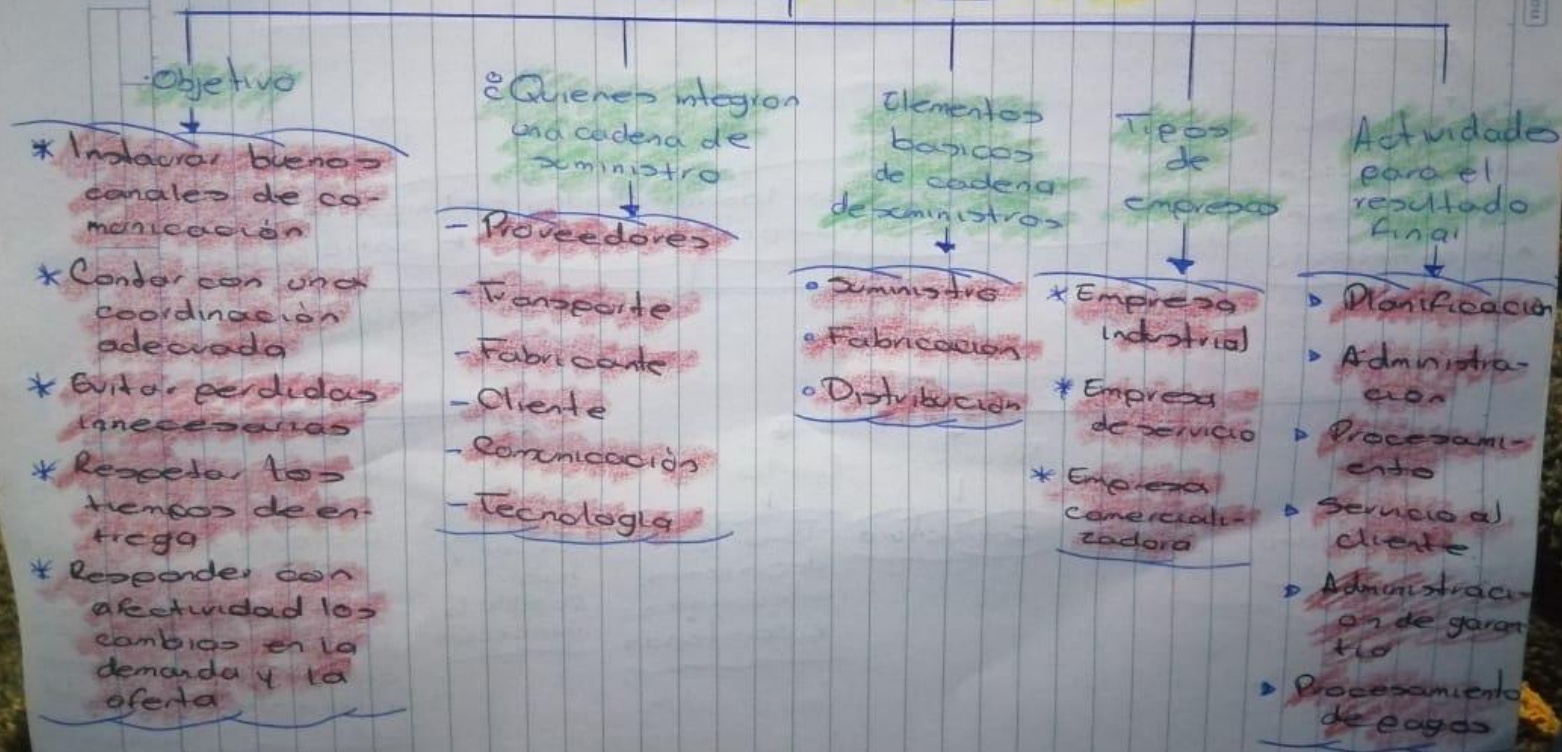 Objetivo
* Instaurar buenos
canales de co-
municación
* Contar con una
coordinación
adecuada
* Evitar perdidas
innecesarias
* Respetar los
tiempos de en-
trega
* Responder con
afectividad los
cambios en la
demanda y la
oferta
¿Quienes integran
una cadena de
suministro
- Proveedores
- Transporte
- Fabricante
- Cliente
- Comunicación
- Tecnologia
Elementos
basicos
de cadena
de suministros
• Suministro
• Fabricacion
• Distribución
Tipos
de
empresas
* Empresa
industrial
* Empresa
de servicio
* Empresa
comerciali-
zadora
Actividades
para el
resultado
final
▹ Planificación
▹ Administra-
cion
▹ Procesami-
ento
▹ Servicio al
cliente
▹ Administraci-
on de garan
tia
▹ Procesamiento
de pagos